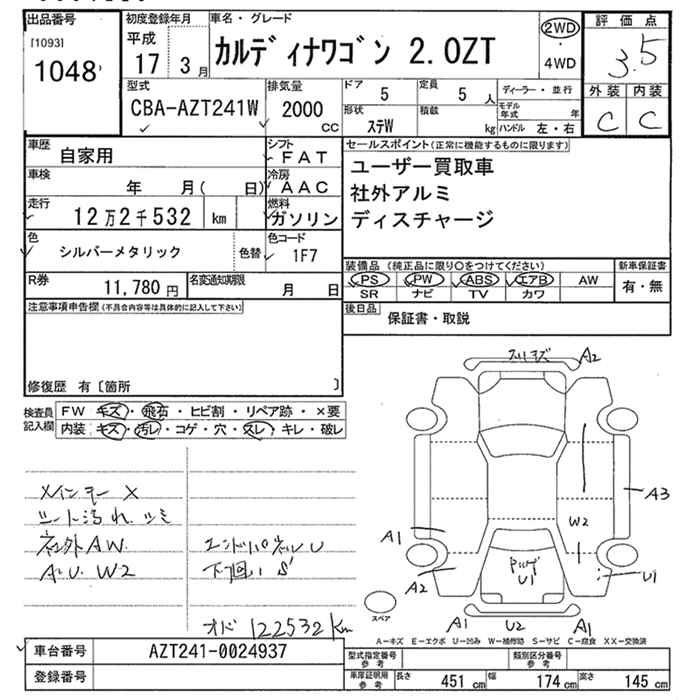 出品番号
[1093]
1048
初度登録年月
平成
17 3月
車名・グレード
カルディナワゴン 2.0ZT
2WD
・
4WD
評価点
3.5
外装 内装
C C
型式
CBA-AZT241W
排気量
2000
cc
ドア
5
定員
5 人
形状
ステW
積載
kg
ディーラー・並行
モデル年式 年
ハンドル 左・右
車歴
自家用
シフト
FAT
車検
年 月( 日)
冷房
AAC
走行
12万2千532 km
燃料
ガソリン
色
シルバーメタリック
色替
色コード
1F7
R券
11,780 円
名変通知期限
月 日
セールスポイント(正常に機能するものに限ります)
ユーザー買取車
社外アルミ
ディスチャージ
装備品(純正品に限り○をつけてください)
PS PW ABS エアB AW
SR ナビ TV カワ
新車保証書
有・無
後日品
保証書・取説
注意事項申告欄(不具合内容等は具体的に記入して下さい)
修復歴 有〔箇所 〕
検査員記入欄
FW キズ・飛石・ヒビ割・リペア跡・×要
内装 キズ・汚レ・コゲ・穴・スレ・キレ・破レ
メインキー X
シート汚れ、シミ
社外AW
A.U. W2
エンドパネルU
下廻りS
オド 122532Km
スリキズ A2
A3
W2
A1
A2
U1
U1
A1 U2 A1
スペア
A－キズ E－エクボ U－凹み W－補修跡 S－サビ C－腐食 XX－交換済
車台番号
AZT241-0024937
登録番号
型式指定番号
参考
類別区分番号
参考
車庫証明用
参考
長さ 451 cm 幅 174 cm 高さ 145 cm